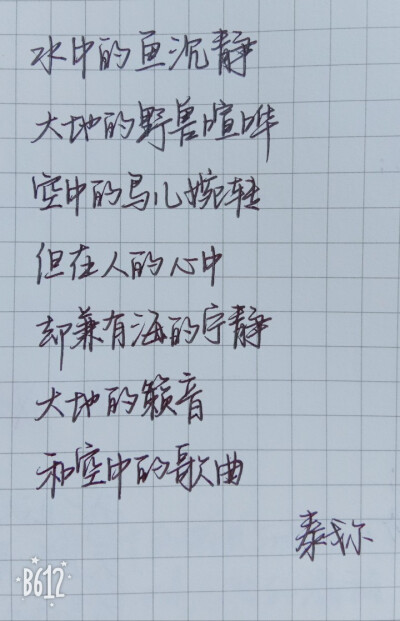 水中的鱼沉静
大地的野兽喧哗
空中的鸟儿婉转
但在人的心中
却兼有海的宁静
大地的籁音
和空中的歌曲
泰戈尔
B612